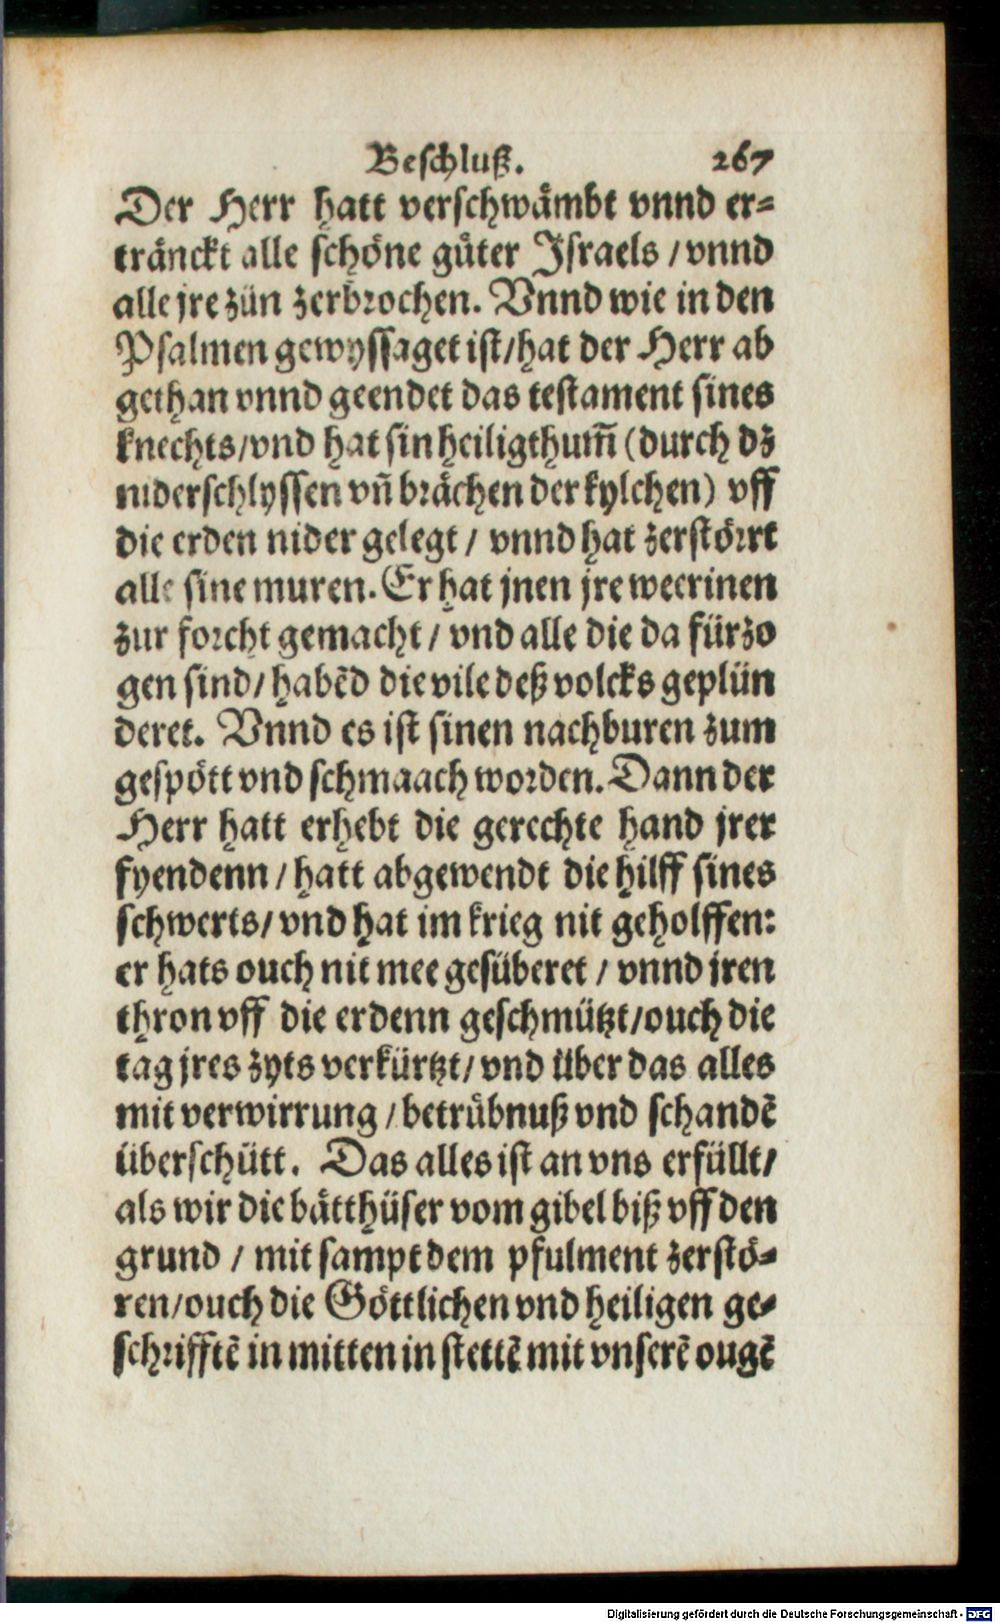 Beschluß. 267
Der Herr hatt verschwåmbt vnnd er=
trånckt alle schöne gůter Israels / vnnd
alle jre zün zerbrochen. Vnnd wie in den
Psalmen gewyssaget ist/hat der Herr ab
gethan vnnd geendet das testament sines
knechts/vnd hat sin heiligthum̃ (durch dz
niderschlyssen vñ bråchen der kylchen) vff
die erden nider gelegt / vnnd hat zerstörrt
alle sine muren. Er hat jnen jre weerinen
zur forcht gemacht / vnd alle die da fürzo
gen sind/ habẽd die vile deß volcks geplün
deret. Vnnd es ist sinen nachburen zum
gespött vnd schmaach worden. Dann der
Herr hatt erhebt die gerechte hand jrer
fyendenn / hatt abgewendt die hilff sines
schwerts/ vnd hat im krieg nit geholffen:
er hats ouch nit mee gesüberet / vnnd jren
thron vff die erdenn geschmützt/ouch die
tag jres zyts verkürtzt/ vnd über das alles
mit verwirrung / betrůbnuß vnd schandẽ
überschütt. Das alles ist an vns erfüllt/
als wir die båtthüser vom gibel biß vff den
grund / mit sampt dem pfulment zerstö=
ren/ouch die Göttlichen vnd heiligen ge=
schrifftẽ in mitten in stettẽ mit vnserẽ ougẽ
Digitalisierung gefördert durch die Deutsche Forschungsgemeinschaft - DFG